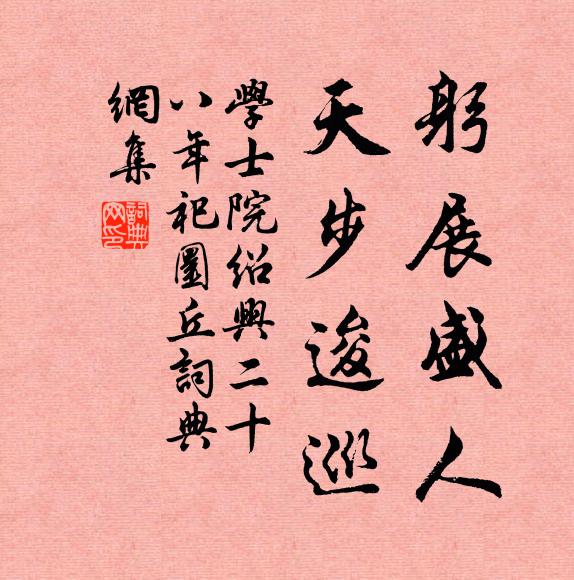 躬展盛人
天步逡巡
學士院紹興二十
八年祀圜丘詞典
網集
詞典
网印